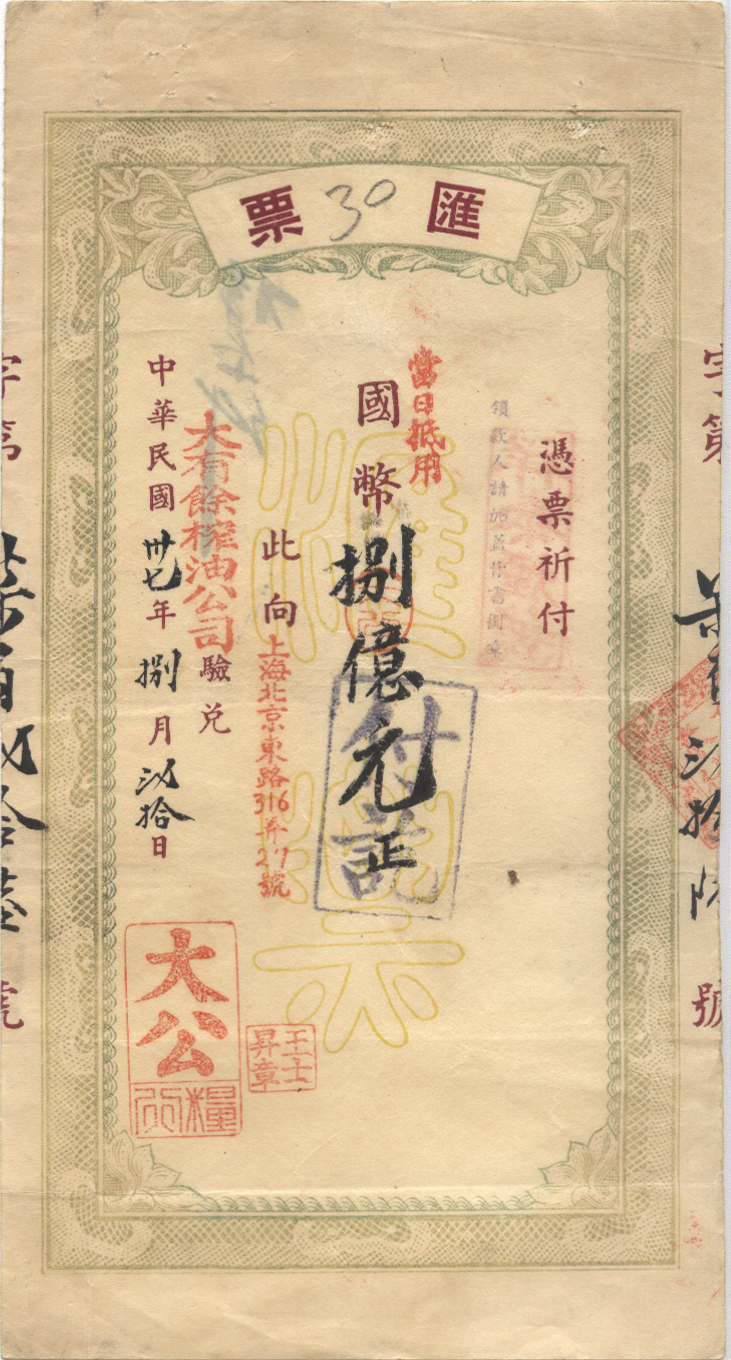 匯票
30
憑票祈付
領款人請加蓋背書圖章
當日抵用
國幣捌億元正
付訖
此向
上海北京東路316弄27號
大有餘榨油公司
驗兌
中華民國卅七年捌月弍拾日
大公
糧行
王士
昇章
字第
號
字第
號
匯票